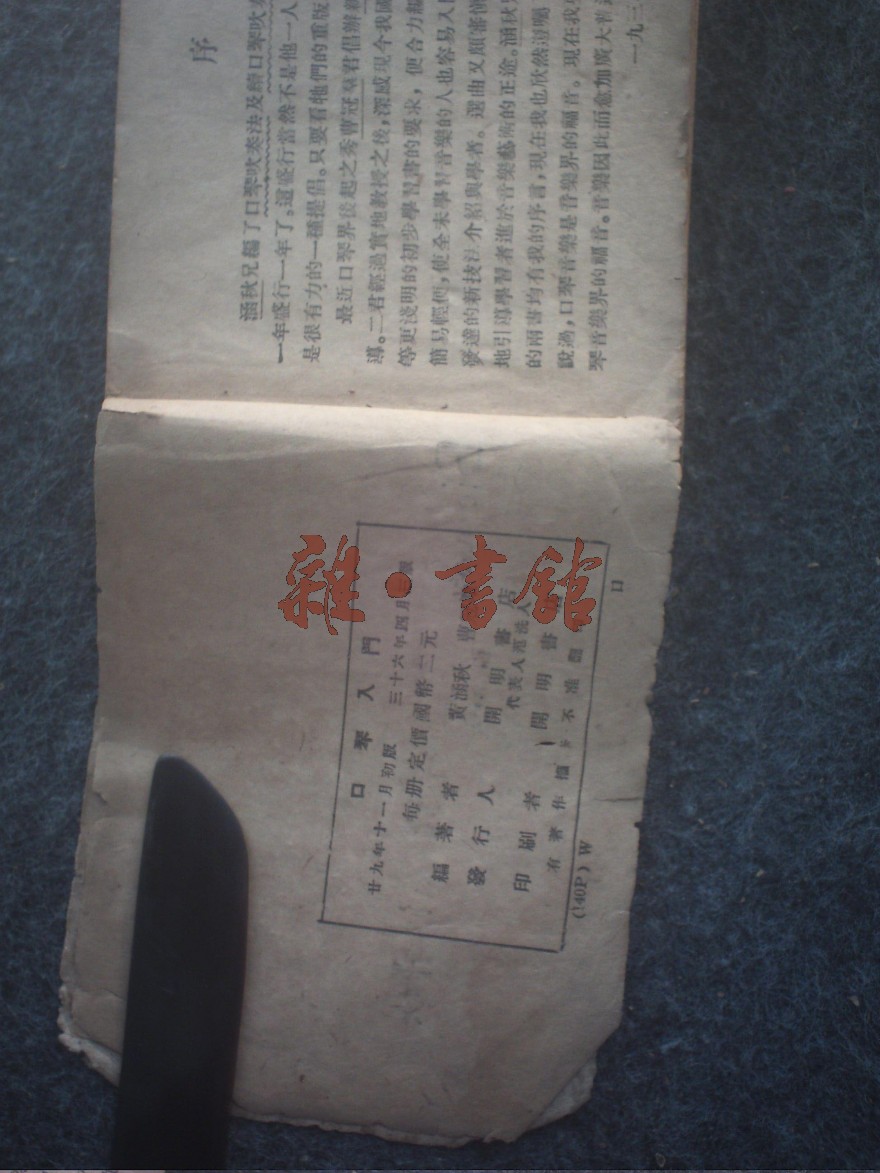 序
涵秋兄編了口琴吹奏法及續口琴吹奏
一年盛行一年了。這盛行當然不是他一人
是很有力的一種提倡。只要看牠們的重版
最近口琴界後起之秀曹冠羣君倡辦
導。二君經過實地教授之後,深感現今我國
等更淺明的初步學習書的要求,便合力編
簡易輕便,使全未學習音樂的人也容易入
發達的新技法介紹與學者。選曲又頗審
地引導學習者進於音樂藝術的正途。涵秋
的兩書均有我的序言,現在我也欣然遵囑
說過,口琴音樂是音樂界的福音。現在我
琴音樂界的福音。音樂因此而愈加廣大普
一九三
口琴入門
廿九年十一月初版 三十六年四月 版
每册定價國幣二元
編著者 黃涵秋
發行人 開明書店
代表人范洗人
印刷者 開明書
有著作權 不准翻
(140P) W
口
雜·書館